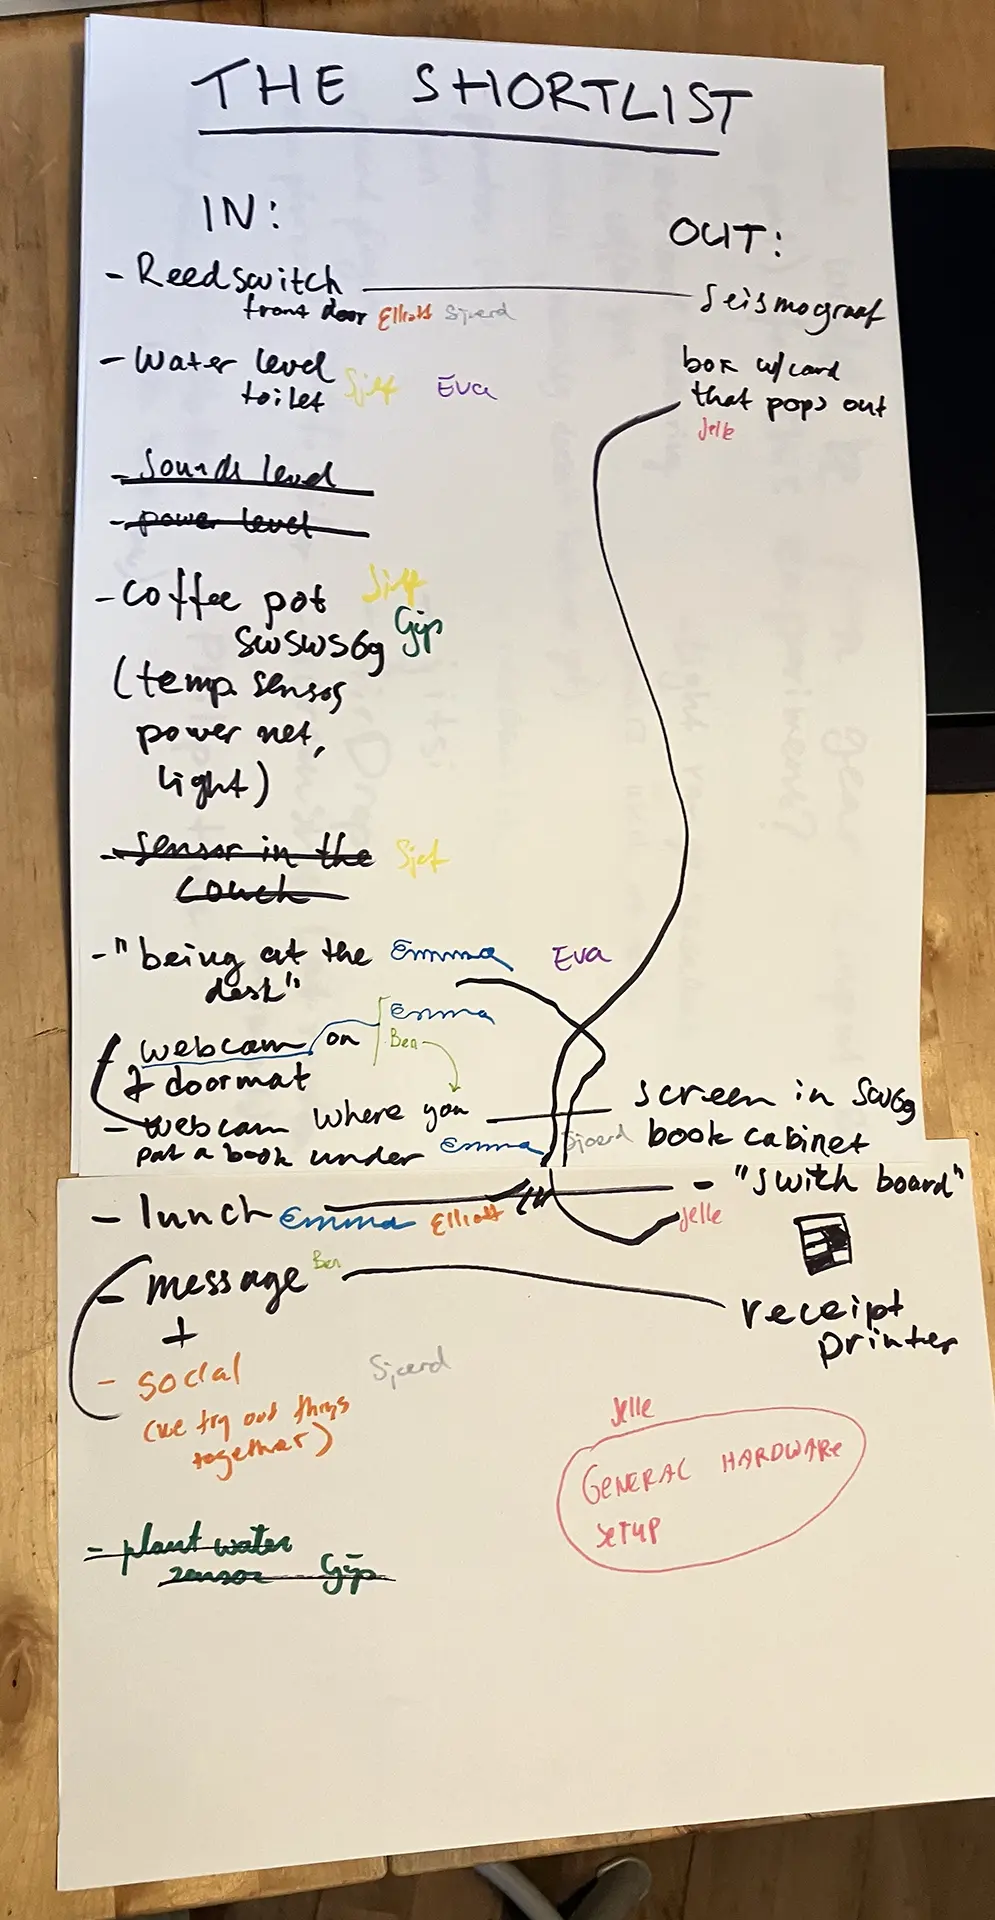 THE SHORTLIST
IN:
- Reedswitch
front door Elliott Sjoerd
- Water level
toilet Sjef Eva
- Sounds level
- power level
- Coffee pot Sjef
SWSWS6g Gijs
(temp. sensor,
power net,
light)
- sensor in the Sjef
couch
- "being at the Emma Eva
desk"
- webcam on Emma
Ben
doormat
- webcam where you
put a book under Emma Sjoerd
- lunch Emma Elliott
- message Ben
+
- social Sjoerd
(we try out things
together)
- plant water
sensor Gijs
OUT:
Seismograaf
box w/card
that pops out
Jelle
screen in SWG9
book cabinet
- "Swith board"
Jelle
receipt
printer
Jelle
GENERAL HARDWARE
SETUP